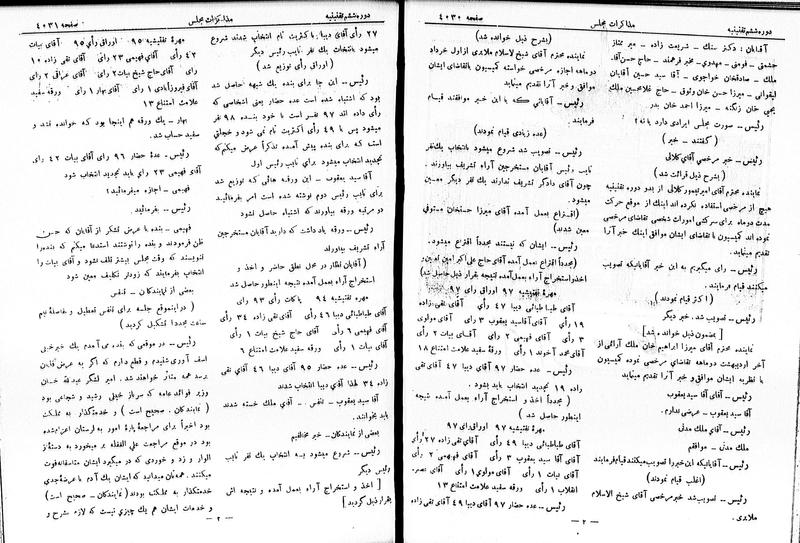 دوره ششم تقنینیه
مذاکرات مجلس
صفحه ۴۰۳۰
آقایان : دکتر سنك - شریعت زاده - میر ممتاز
حشمتی - فومنی - مهدوی - مخبر فرهمند - حاج حسن آقا
ملك - صادقخان خواجوی - آقا سید حسین آقایان
لیقوانی - میرزا حسن خان وثوق - حاج غلامحسین ملك
یحیی خان زنگنه - میرزا احمد خان بدر
رئیس - صورت مجلس ایرادی دارد یا نه ؟
( گفتند - خیر )
رئیس - خبر مرخصی آقای کلالی
( بشرح ذیل قرائت شد )
نماینده محترم آقای امیر تیمور کلالی از بدو دوره تقنینیه
هیچ از مرخصی استفاده نکرده اند اینك از موقع حرکت
مدت دوماه برای سرکشی امورات شخصی تقاضای مرخصی
نموده اند کمیسیون با تقاضای ایشان موافق اینك خبر آنرا
تقدیم مینماید.
رئیس - رای میگیریم به این خبر آقایانیکه تصویب
میکنند قیام فرمایند .
( اکثر قیام نمودند )
رئیس - تصویب شد . خبر دیگر
[ بمضمون ذیل خوانده شد ]
نماینده محترم آقای میرزا ابراهیم خان ملك آرائی از
آخر اردیبهشت دوماهه تقاضای مرخصی نموده کمیسیون
با نظریه ایشان موافق و خبر آنرا تقدیم مینماید
رئیس - آقای آقا سید یعقوب
آقا سید یعقوب - عرضی ندارم .
رئیس - آقای ملك مدنی
ملك مدنی - موافقم
رئیس - آقایانیکه این خبر را تصویب میکنند قیام فرمایند
( اغلب قیام نمودند )
رئیس - تصویب شد خبر مرخصی آقای شیخ الاسلام
ملایری .
(بشرح ذیل خوانده شد)
نماینده محترم آقای شیخ الاسلام ملایری از اول خرداد
دوماهه اجازه مرخصی خواسته کمیسیون با تقاضای ایشان
موافق و خبر آنرا تقدیم مینماید
رئیس - آقایانی که با این خبر موافقند قیام
فرمایند .
(عده زیادی قیام نمودند)
رئیس - تصویب شد شروع میشود بانتخاب یك نفر
نایب رئیس آقایان مستخرجین آراء تشریف بیاورند .
چون آقای دادگر تشریف ندارند یك نفر دیگر معین
میشود .
(اقتراع بعمل آمده آقای میرزا حسنخان مستوفی
معین شدند)
رئیس - ایشان که نیستند مجدداً اقتراع میشود .
(مجدداً اقتراع بعمل آمده آقای حاج علی اکبر امین معین .
اخذ و استخراج آراء بعمل آمده نتیجه بقرار ذیل حاصل شد)
مهرهٔ تفتیشیه ۹۷ اوراق رای ۹۷
آقای طباطبائی دیبا ۴۷ رأی آقای تقی زاده
۱۹ رأی آقا سید یعقوب ۳ رای آقای مولوی
۳ رأی آقای فهیمی ۲ رأی آقای بیات ۲ رأی
آقای محمد آخوند ۱ رأی ورقهٔ سفید علامت امتناع ۱۸
رئیس - عده حضار ۹۷ آقای دیبا ۴۷ آقای تقی
زاده ۱۹ تجدید انتخاب باید بشود .
( مجدداً اخذ و استخراج آراء بعمل آمده نتیجه
اینطور حاصل شد )
مهرهٔ تفتیشیه ۹۷ اوراق رای ۹۷
آقای طباطبائی دیبا ۴۹ رأی آقای تقی زاده ۲۷ رأی
آقای آقا سید یعقوب ۳ رأی آقای فهیمی ۲ رأی
آقای بیات ۱ رأی آقای مولوی ۱ رأی آقای عصر
انقلاب ۱ رأی ورقه سفید علامت امتناع ۱۳
رئیس - عده حضار ۹۷ آقای دیبا ۴۹ آقای تقی زاده
- ۲ -
دوره ششم تقنینیه
مذاکرات مجلس
صفحه ۴۰۳۱
۲۷ رأی آقای دیبا باکثریت تام انتخاب شدند شروع
میشود بانتخاب یك نفر نایب رئیس دیگر
( اوراق رأی توزیع شد )
رئیس - این جا برای بنده یك شبهه حاصل شد
بود که اشتباه شده است عده حضار یعنی اشخاصی که
رأی داده اند ۹۷ نفر است با خود بنده ۹۸ نفر
میشود پس با ۴۹ رأی اکثریت تام نمی شود و خجالتی
است که برای بنده پیش آمده تذکراً عرض میکنم که
تجدید انتخاب میشود برای نایب رئیس اول
آقا سید یعقوب - این ورقه هائی که توزیع شد
برای نایب رئیس دوم نوشته شده است امر بفرمائید
دو مرتبه ورقه بیاورند که اشتباه حاصل نشود
رئیس - ورقه یادداشت که دارید آقایان مستخرجین
آراء تشریف بیاورند
( آقایان نظار در محل نطق حاضر و اخذ و
استخراج آراء بعمل آمده نتیجه اینطور حاصل شد
مهره تفتیشیه ۹۴ پاکات رأی ۹۳ رای
آقای طباطبائی دیبا ۴۶ رأی آقای تقی زاده ۳۴ رأی
آقای فهیمی ۶ رأی آقای حاج شیخ بیات ۱ رأی
آقای بیات ۱ رأی ورقه سفید علامت امتناع ۶
رئیس - عده حضار ۹۵ آقای دیبا ۴۶ آقای تقی
زاده ۳۴ لهذا آقای دیبا انتخاب شدند
آقا سید یعقوب - تنفس . - آقای ملك خسته شدند
باید بخوانند .
بعضی از نمایندگان - خیر مخالفیم
رئیس - شروع میشود بسه انتخاب یك نفر نایب
رئیس دیگر
[ اخذ و استخراج آراء بعمل آمده و نتیجه اش
بقرار ذیل گردید ]
مهرهٔ تفتیشیه ۹۵ اوراق رأی ۹۵ آقای بیات
۴۲ رأی آقای فهیمی ۲۳ رای آقای تقی زاده ۱۰
رای آقای حاج شیخ بیات ۲ رای آقای عراقی ۲ رای
آقای فیروز آبادی ۱ رای آقای بهار ۱ رای ورقه سفید
علامت امتناع ۱۳
بهار - یك ورقه هم اینجا بود که خوانده نشد و
سفید حساب شد .
رئیس - عدهٔ حضار ۹۶ رای آقای بیات ۴۲ رای
آقای فهیمی ۲۳ رای باید تجدید انتخاب شود
فهیمی - اجازه میفرمائید ؟
رئیس - بفرمائید .
فهیمی - بنده با عرض تشکر از آقایان که حسن
ظن فرمودند و بنده را نوشتند استدعا میکنم که بنده را
ننویسند که وقت مجلس بیشتر تلف نشود و آقای بیات را
انتخاب بفرمایند که زودتر تکلیف معین شود
بعضی از نمایندگان - تنفس
( دراینموقع جلسه برای تنفس تعطیل و بفاصلهٔ نیم
ساعت مجدداً تشکیل گردید )
رئیس - در موقعی که بنده می آمدم یك خبر خیلی
اسف آوری شنیدم و قطع دارم که اگر به عرض آقایان
برسد همه متأثر خواهند شد . امیر لشگر عبدالله خان
وزیر فوائد عامه که سرباز خیلی رشید و شجاعی بود
( نمایندگان - صحیح است ) و خدمتگذار به مملکت
بود اخیراً برای مراجعهٔ پارهٔ امور به لرستان اعزام شده
بود در موقع مراجعت علی الغفله بر میخورد به دستهٔ از
الوار و زد و خوردی که در میگیرد ایشان متأسفانه فوت
میکنند . همه تان میدانید که ایشان یك آدم با عرضهٔ جدی
خدمتگذار به مملکت بودند (نمایندگان - صحیح است)
و خدمات ایشان هم یك چیزی نیست که لازم بشرح و
- ۲ -